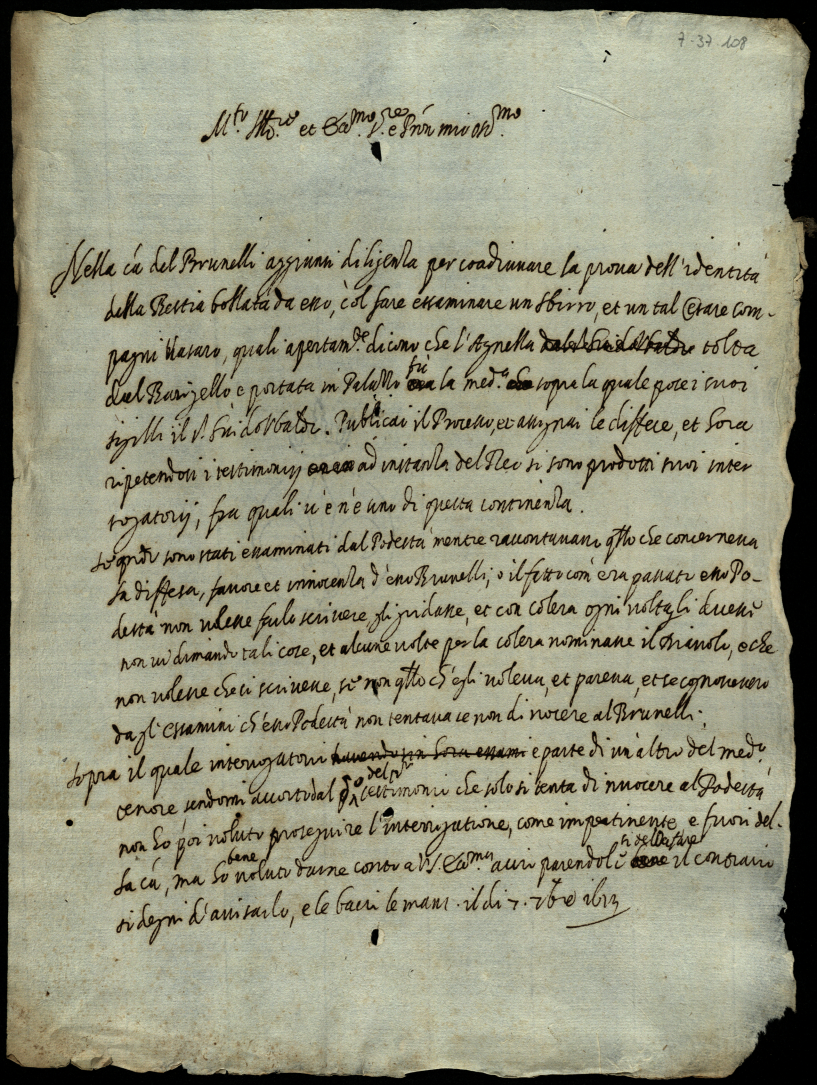 7-37 108
M.to Ill.re et Ecc.mo S.re e Pron mio oss.mo
Nella ca del Brunelli aggiunsi diligenza per coadiuvare la prova dell'identità
della Bestia bollata da esso, col fare essaminare un sbirro, et un tal Cesare Com-
pagni, quali apertam.te dicono che l'Agnella tolta
dal Barigello e portata in Palazzo fù la med.a sopra la quale pose i suoi
sigilli il S. Guidobaldi. Publicai il Processo, et assignai le diffese, et hora
ripetendosi i testimonij ad instanza del Reo si sono prodotti suoi inter
rogatorij, fra quali v'è n'è uno di questa continenza.
Se quando sono stati essaminati dal Podestà mentre raccontavano q.llo che concerneva
la diffesa, favore et innocenza d'esso Brunelli, o il fatto com'era passato esso Po-
destà non volesse farlo scrivere, gli gridasse, et con colera ogni volta gli dicesse
non vi dimando tali cose, et alcune volte per la colera nominasse il Diavolo, e che
non volesse che si scrivesse, se non q.llo ch'egli voleva, et pareva, et se cognoscevero
da gl'essamini ch'esso Podestà non tentava se non di nocere al Brunelli;
sopra il quale interrogatorio havendo in hora essam e parte di un'altro del med.o
tenore sendomi accorto dal p.o testimonio che solo si tenta di nuocere al Podestà
non ho poi voluto proseguire l'interrogatione, come impertinente, e fuori del-
la ca, ma ho bene voluto darne conto a V.S. Ecc.ma acciò parendoli si debba fare il contrario
si degni d'avisarlo, e le bacio le mani. il di 7. 7bre